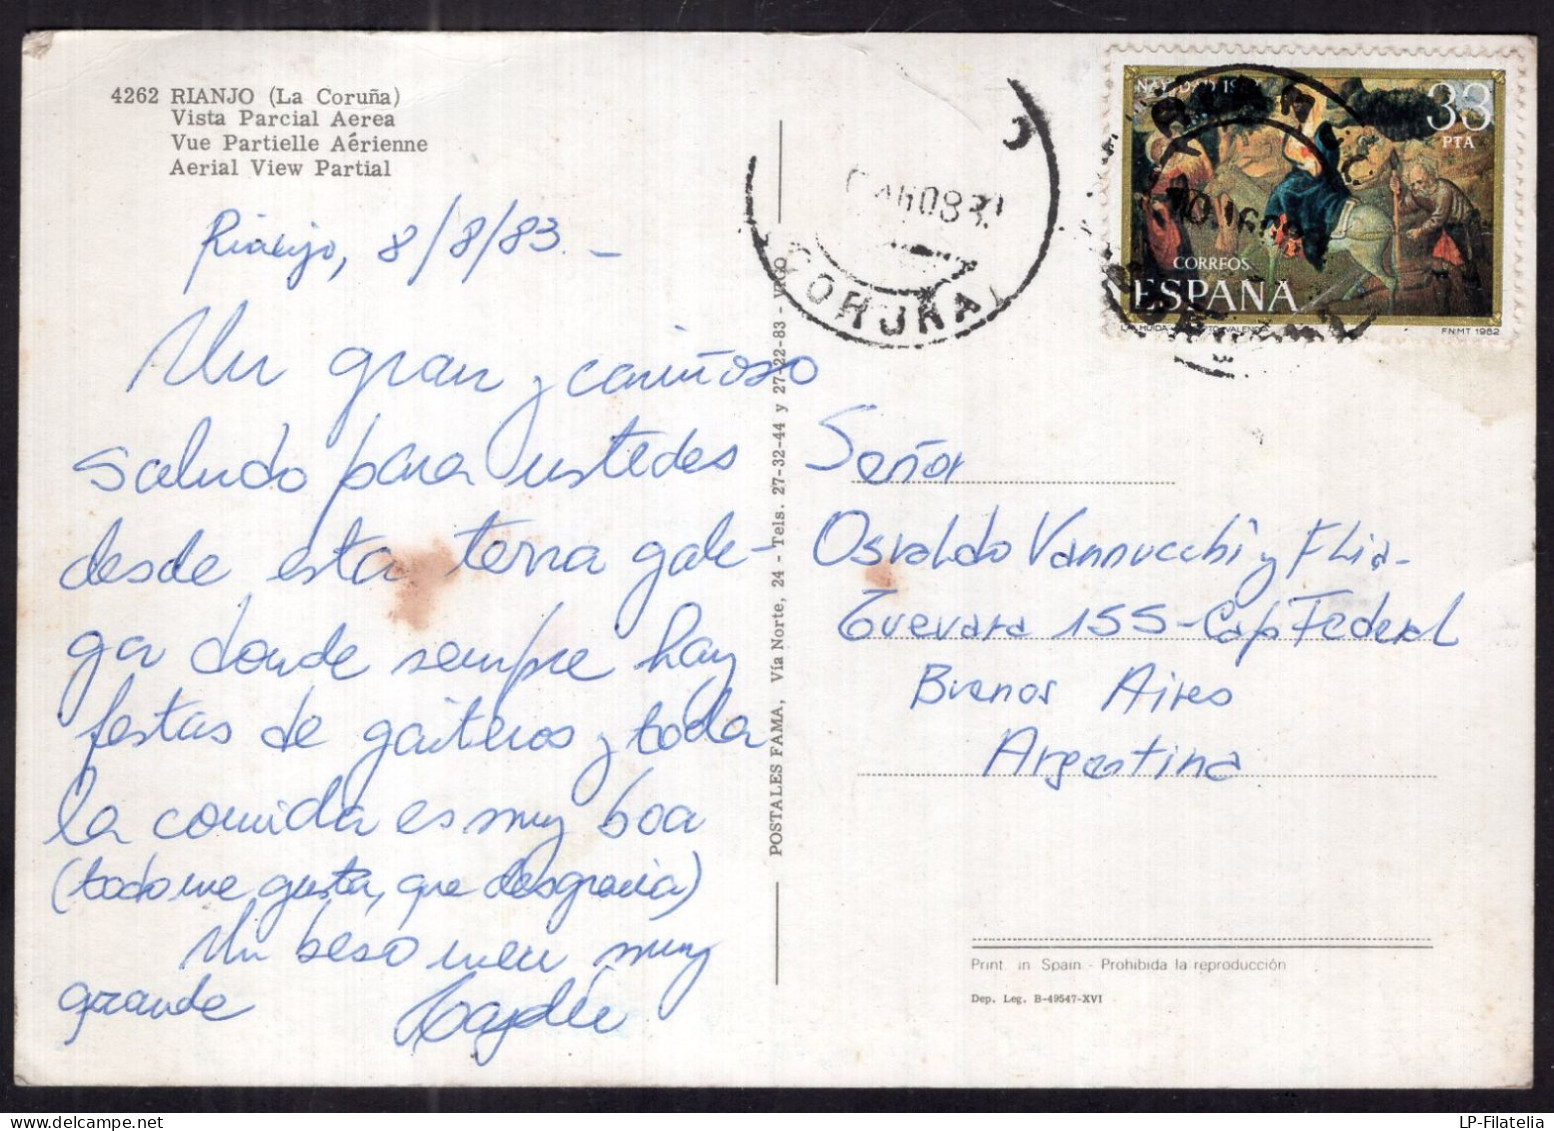 4262 RIANJO (La Coruña)
Vista Parcial Aerea
Vue Partielle Aérienne
Aerial View Partial
Rianjo, 8/8/83.-
Un gran y cariñoso
saludo para ustedes
desde esta terra gale-
ga donde sempre hay
festas de gaiteros y toda
la comida es muy boa
(todo me gusta, que desgracia)
Un beso meu muy
grande
POSTALES FAMA, Vía Norte, 24 - Tels. 27-32-44 y 27-22-83 - VIGO
NAVIDAD 1982
33
PTA
CORREOS
ESPAÑA
LA HUIDA
F.N.M.T. 1982
CORUÑA
Señor
Osvaldo Vannucchi y Flia.
Guevara 155-Cap Federal
Buenos Aires
Argentina
Print. in Spain - Prohibida la reproducción
Dep. Leg. B-49547-XVI
LP-Filatelia